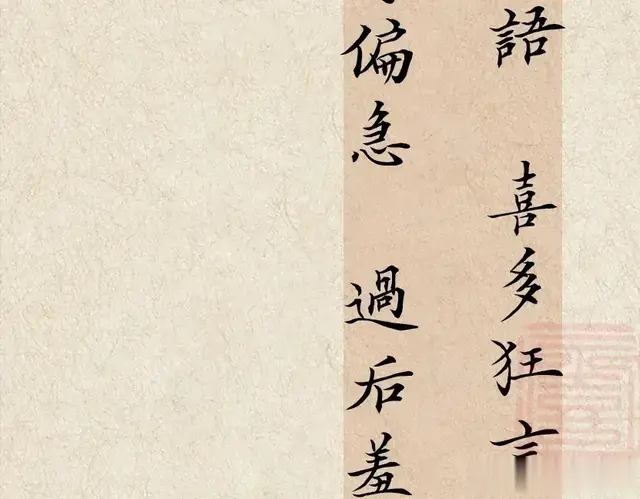 語 喜多狂言
偏急 過后羞